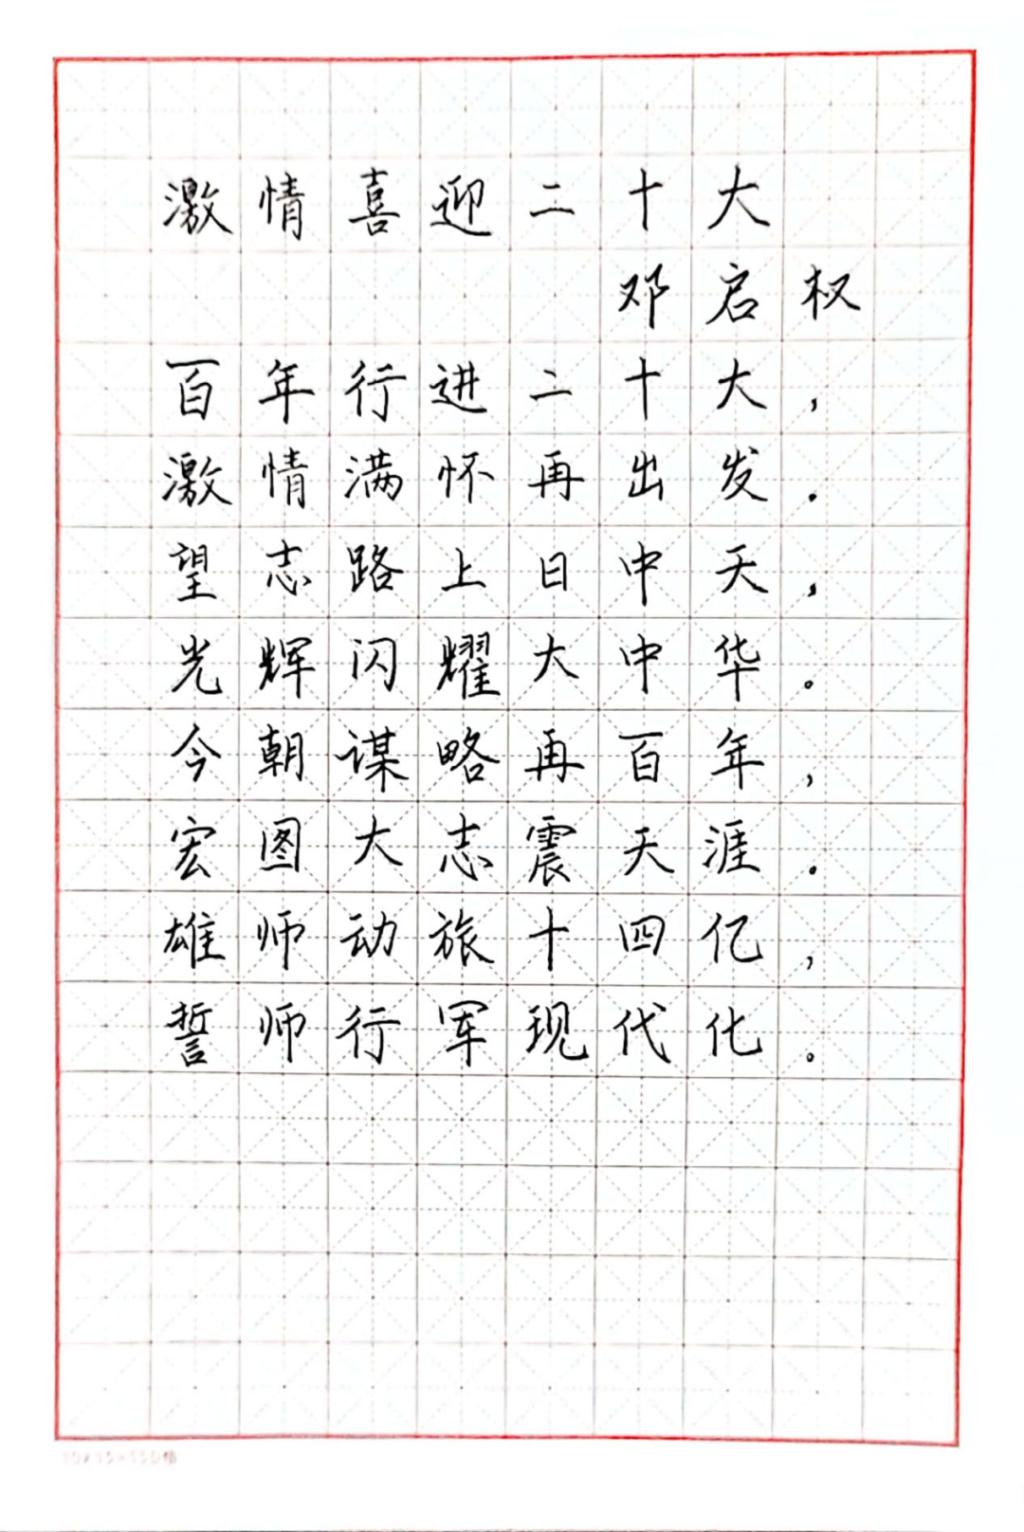 激情喜迎二十大
邓启权
百年行进二十大，
激情满怀再出发．
望志路上日中天，
光辉闪耀大中华。
今朝谋略再百年，
宏图大志震天涯．
雄师动旅十四亿，
誓师行军现代化。
10×15=150格